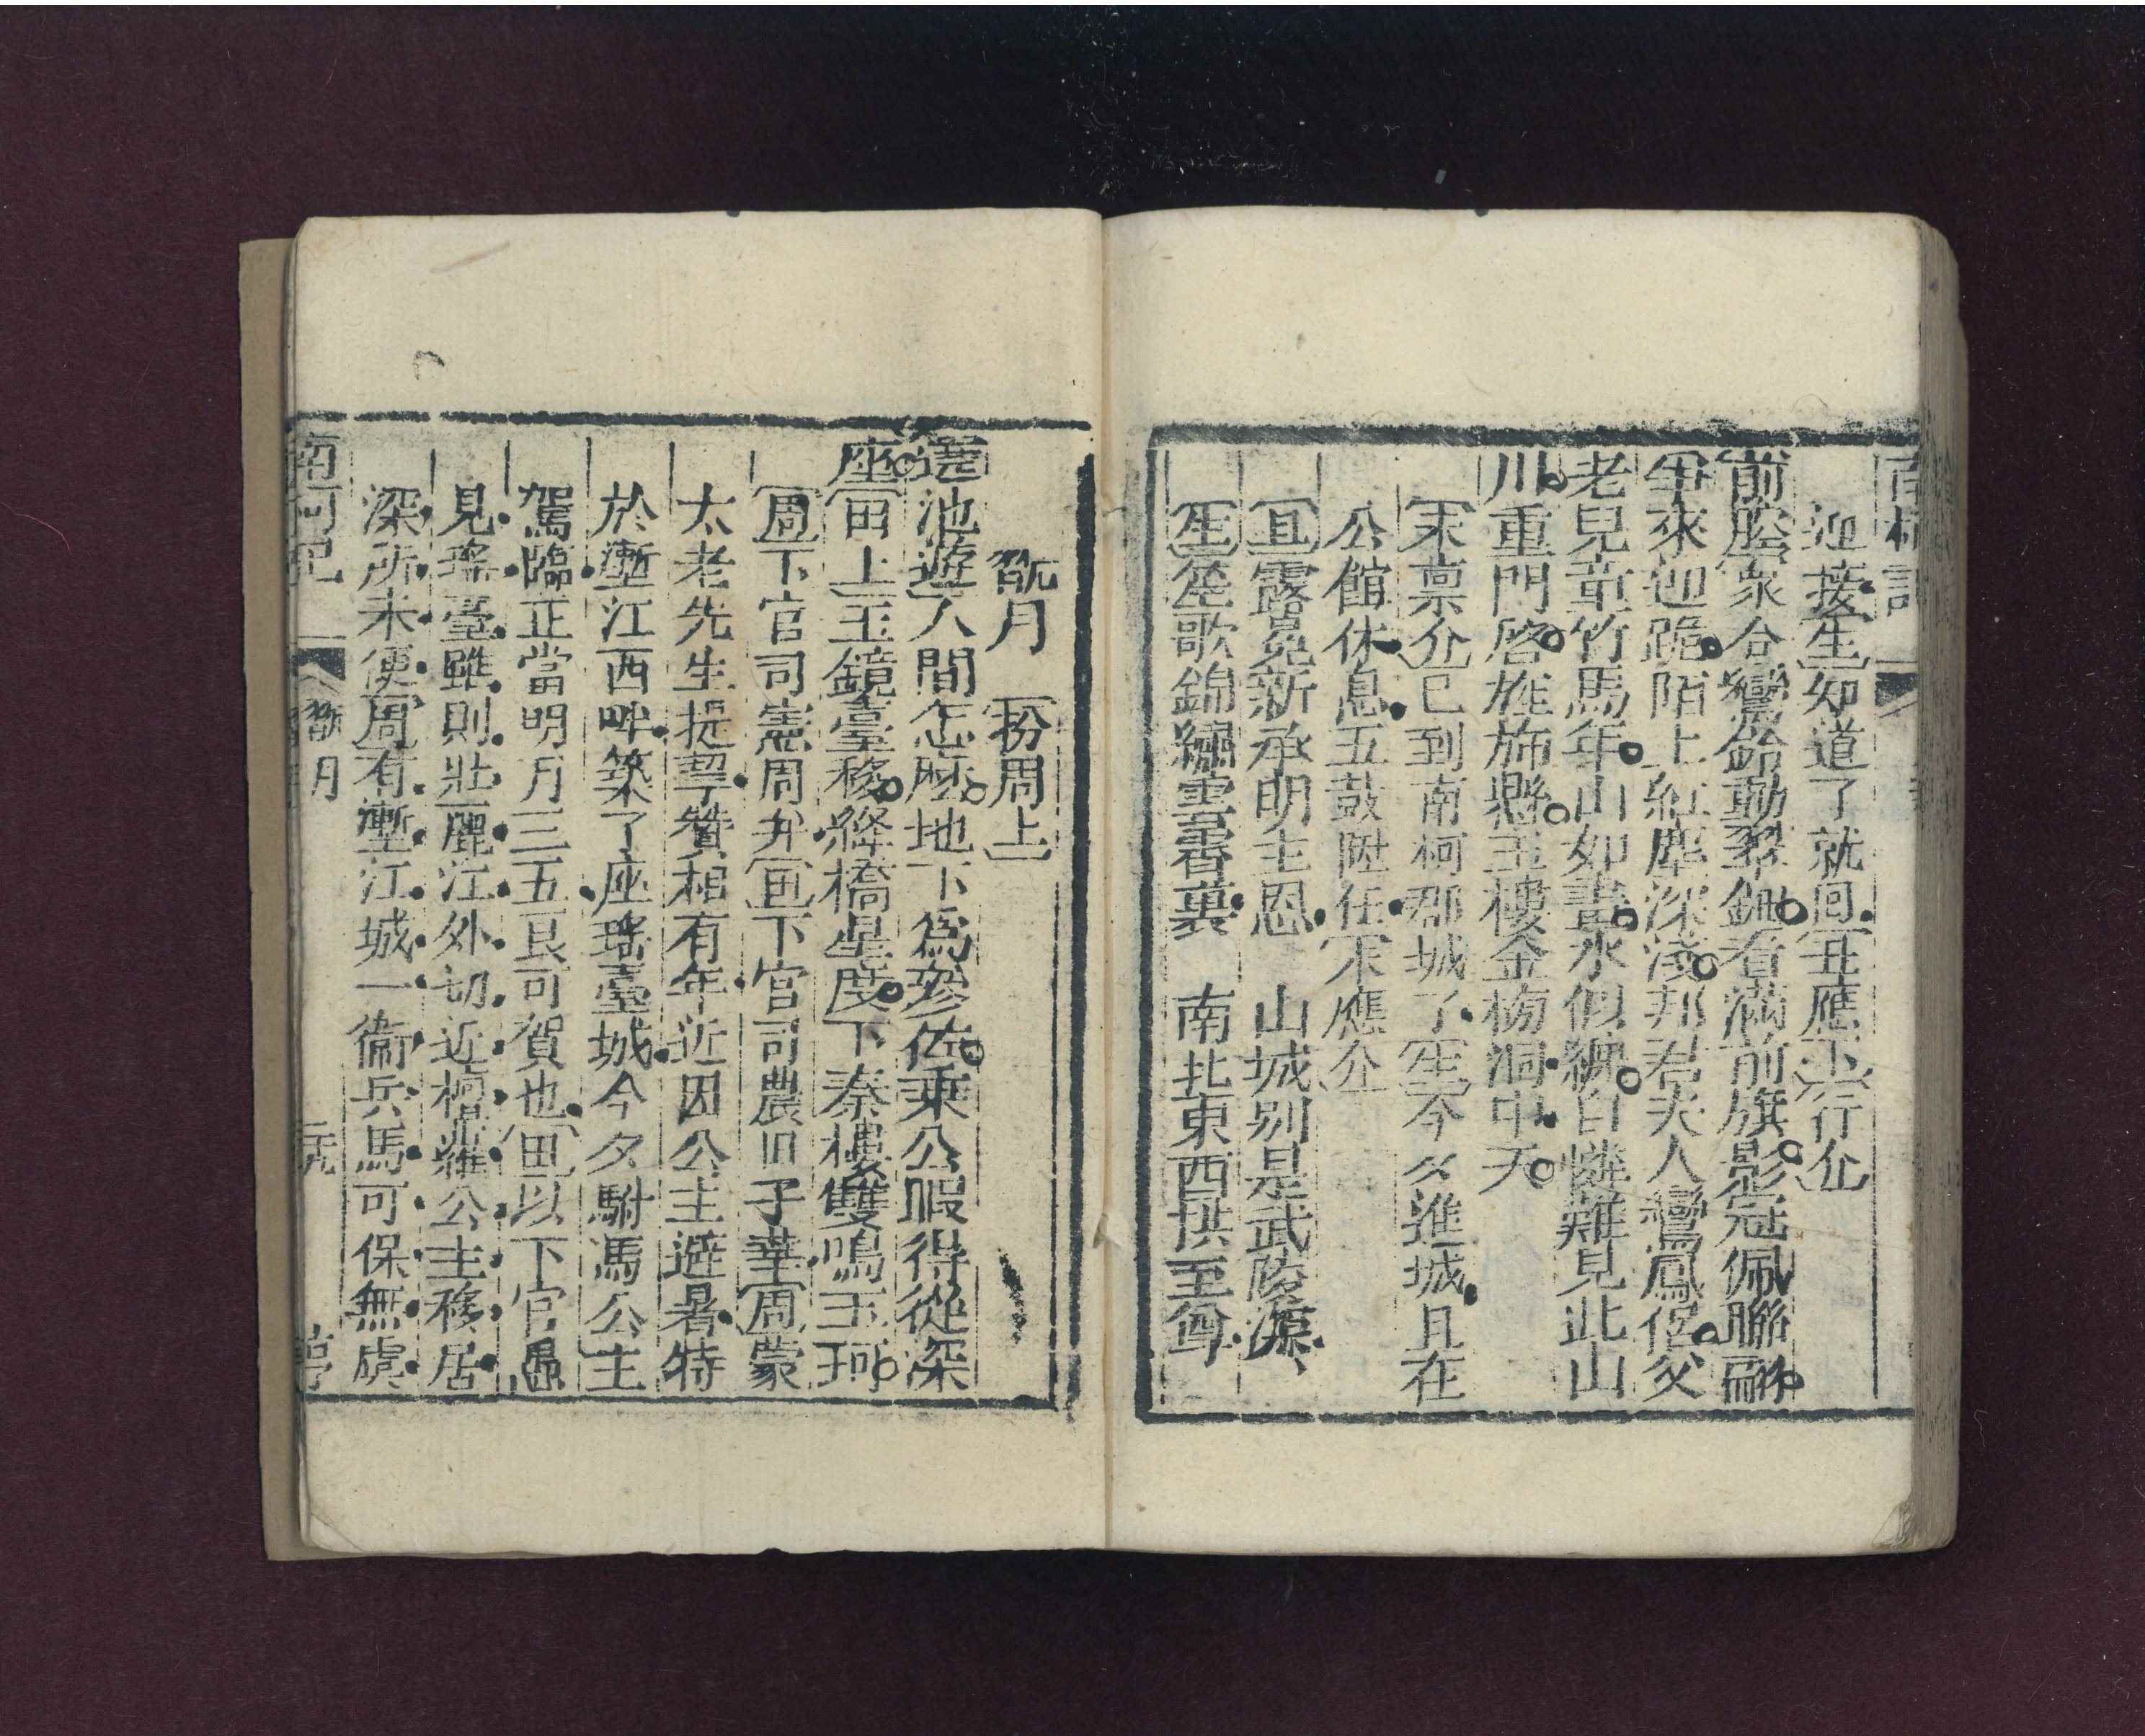 南柯記
迎接生知道了就回丑應下行仚
前腔衆合鸞鈴動翠鈿看滿前旗影冠佩聯翩
生來迎跪陌上紅塵深淺邦君夫人鸞鳳侶父
老兒童竹馬年山如畫水似纈自憐難見此山
川重門啓旌旆懸玉樓金榜洞中天
末禀介已到南柯郡城了生今夕進城且在
公館休息五鼓陞任末應仚
旦露冕新承明主恩 山城别是武陵源
生笙歌錦繡雲霄裏 南北東西拱至尊
翫月 扮周上
遶池遊人間怎麽地下爲參佐乘公暇得從深
座田上玉鏡臺移絳橋星度下秦樓雙鳴玉珂
周下官司憲周弁田下官司農田子華周蒙
太老先生提挈贊相有年近因公主避暑特
於壍江西畔築了座瑤臺城今夕駙馬公主
駕臨正當明月三五良可賀也田以下官愚
見瑤臺雖則壯麗江外切近檀蘿公主移居
深所未便周有壍江城一衞兵馬可保無虞
南柯記 翫月